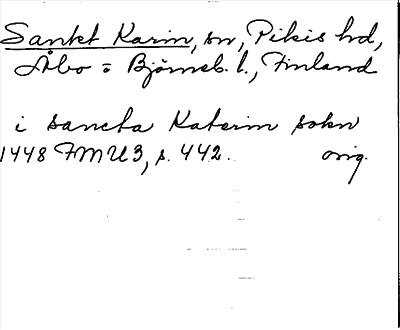 Sankt Karin, sn, Pikis hd,
Åbo o Björneb. l., Finland
i sancta Katerin sokn
1448 FMU 3, s. 442. orig.